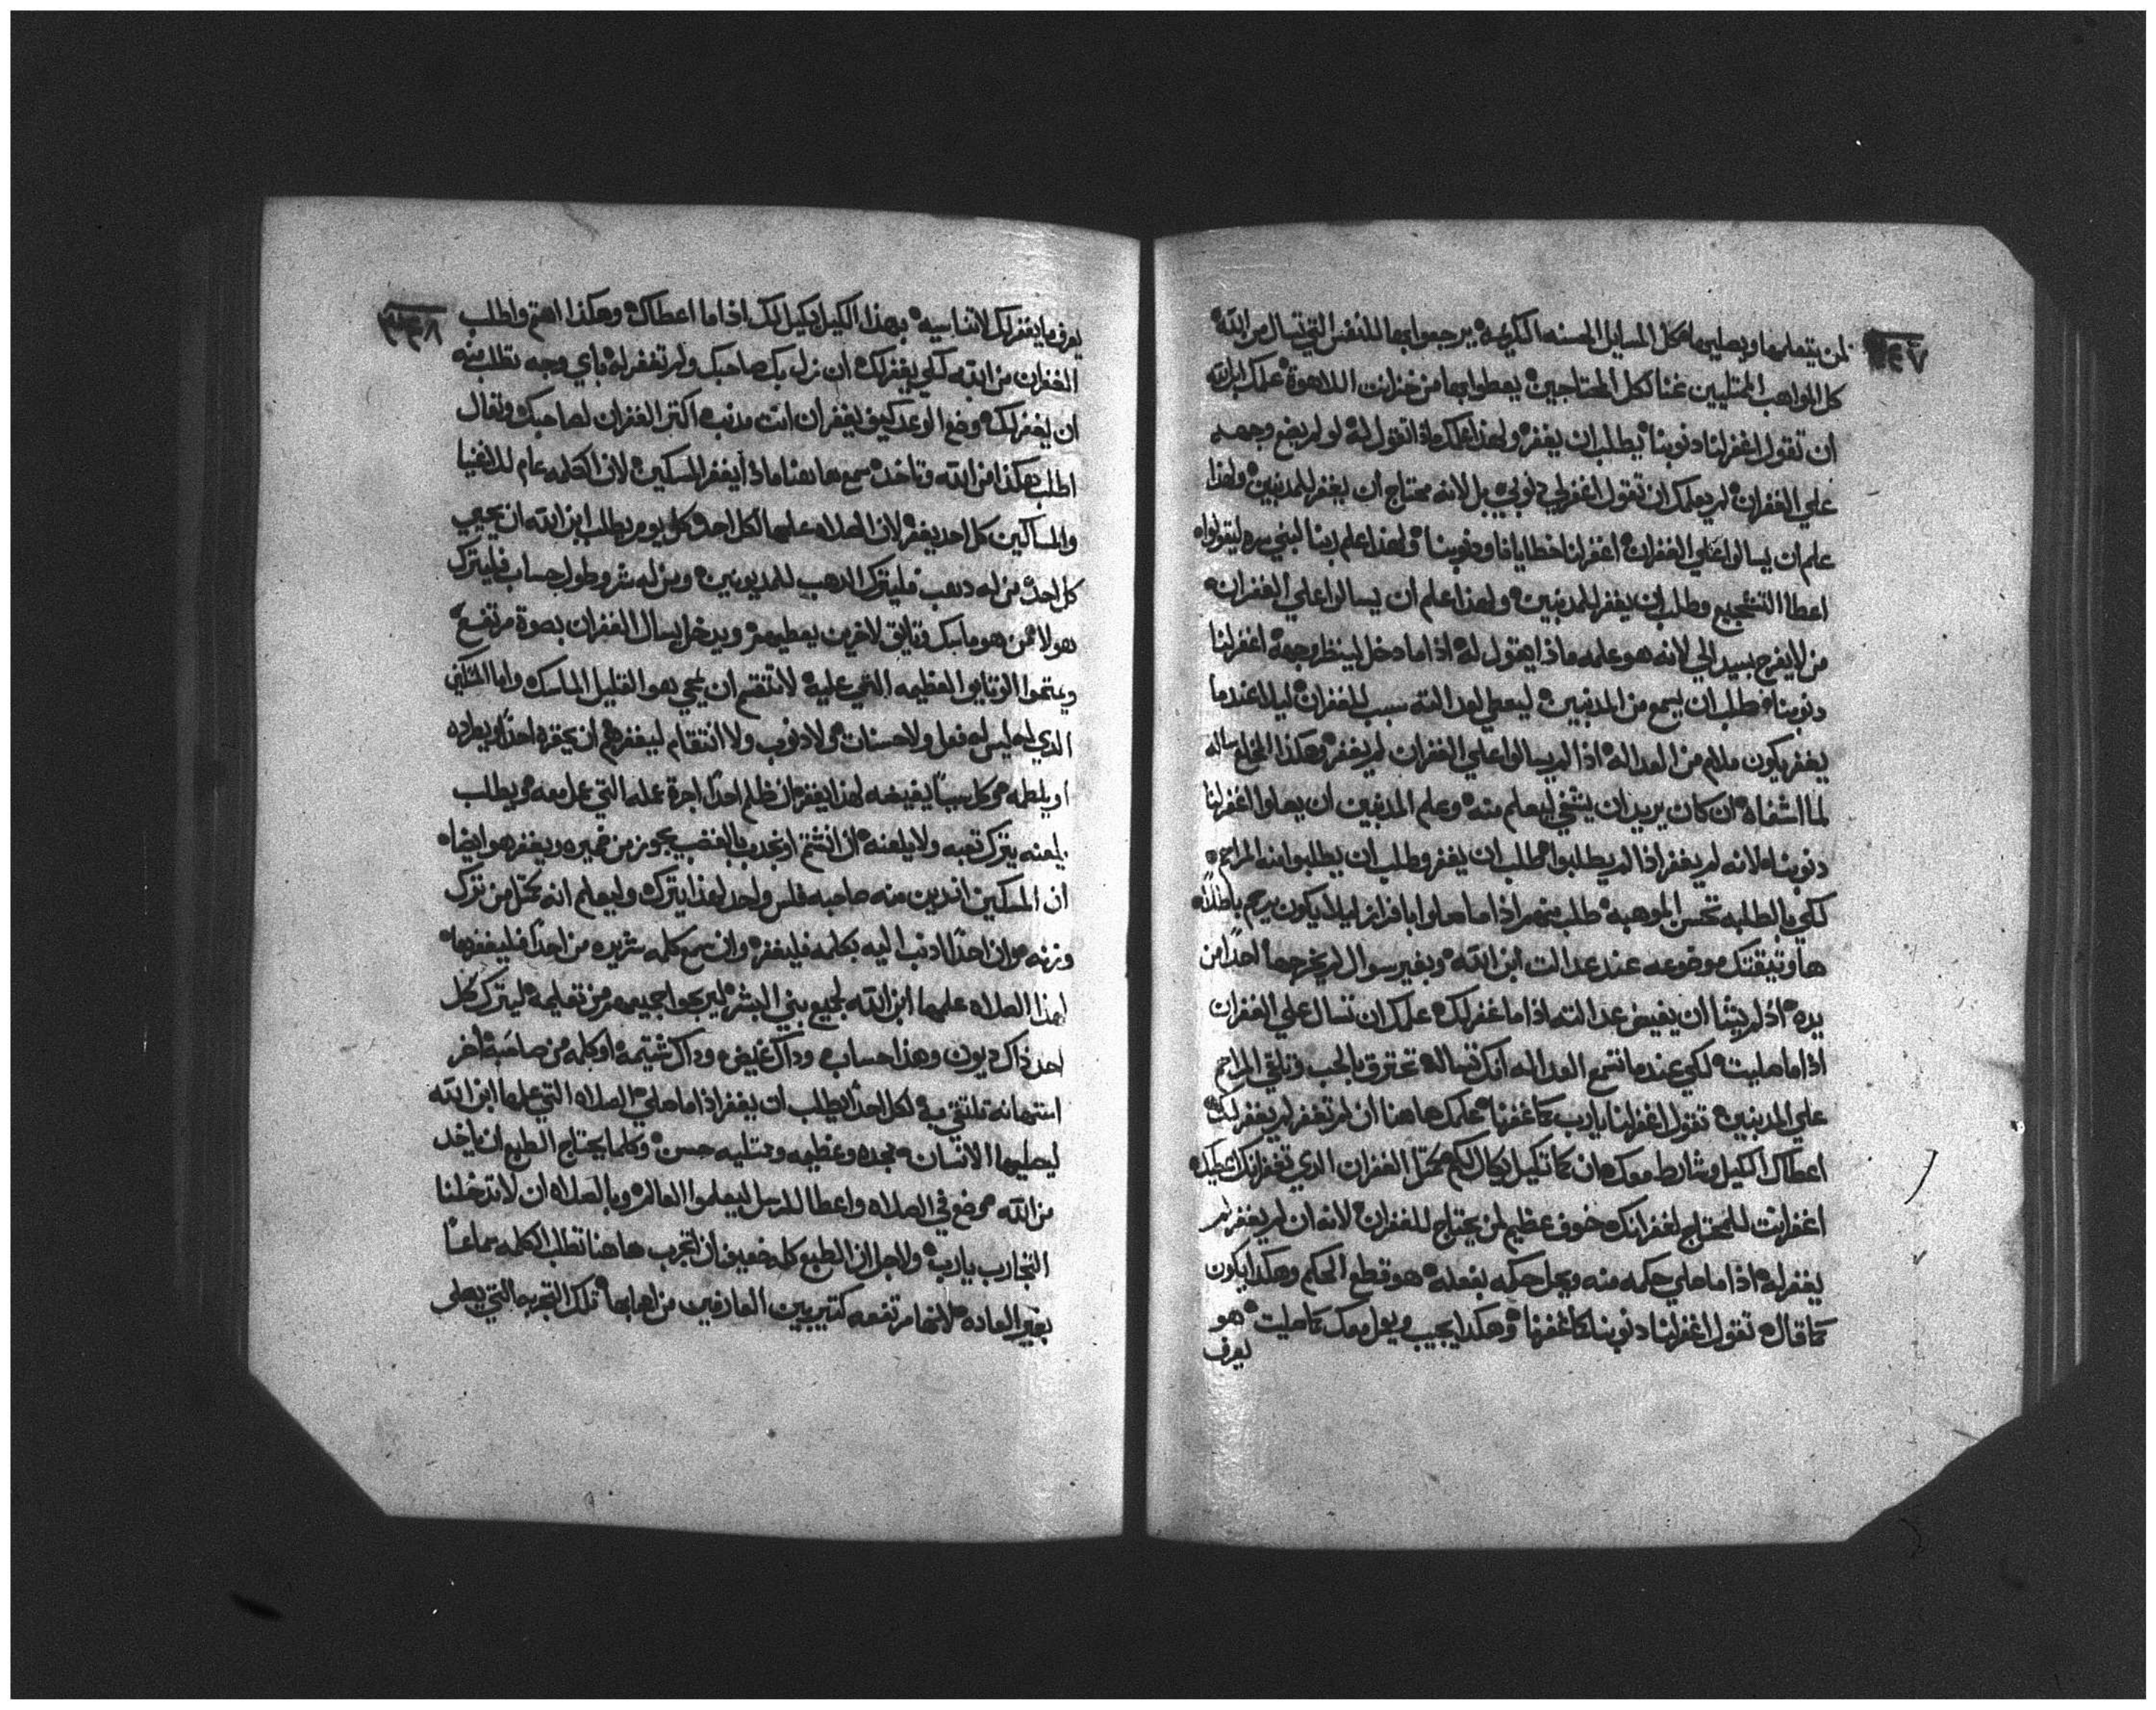 لمن يتعلمها ويصليها كل المسايل الحسنه الكريمه يرجعوا بها للنفس التي تسال من الله
كل المواهب الممتليين غنا لكل المحتاجين يعطوا بها من خزاين اللاهوة علمك ابن الله
ان تقول اغفر لنا دنوبنا يطلب ان يغفر ولهذا علمك ماذا تقول له لو لم يضع وجهه
علي الغفران لم يعلمك ان تقول اغفر لي دنوبي بل لانه محتاج ان يغفر للمدنبين ولهذا
علم ان يسالوا علي الغفران اغفر لنا خطايانا ودنوبنا ولهذا علم ربنا لبني سره ليقولوا
اعطا التشجيع وطلب ان يغفر للمدنبين ولهذا علم ان يسالوا علي الغفران
من لا يفرح بسيد الحي لانه هو علمه ماذا يقول له اذا ما دخل لينظر وجهه اغفر لنا
دنوبنا طلب ان يسمع من المدنبين ليعطي لعدالته سبب للغفران ليلا عندما
يغفر يكون ملام من العداله اذا لم يسالوا علي الغفران لم يغفر وهكذا
ان كان يريد ان يشفي ليعلم منه وعلم المدنبين ان يصلوا اغفر لنا
دنوبنا لانه لم يغفر اذا لم يطلبوا طلب ان يغفر وطلب ان يطلبوا منه المراحم
لكي بالطلبه تحسن الموهبه طلب منهم اذا ما صلوا ليلا يكون يرحم باطلا
ها وتيقتك موضوعه عند عدالت ابن الله وبغير سوال لم يخرجها احدا من
يده اذ لم يشا ان يغيض عدالته اذا ما غفر لك علمك ان تسال علي الغفران
اذا ما صليت لكي عندما تسمع العداله انك تساله تحترق بالحب وتلقي المراحم
علي المدنبين تقول اغفر لنا يا رب كما غفرنا علمك هاهنا ان لم تغفر لم يغفر لك
اعطاك الكيل وشارط معك ان كما تكيل يكال لكم الغفران الدي تغفر
اغفر انت للمحتاج لغفرانك خوف عظيم لمن يحتاج للغفران لانه ان لم يغفر لم
يغفر له اذا ما صلي حكمه منه ويحل حكمه بفعله هو قطع الحكم وهكذا يكون
كما قال تقول اغفر لنا دنوبنا كما غفرنا وهكذا يجيب ويعل معك كما صليت هو
يعرف
يعرف ما يغفر لك لا تناسيه بهذا الكيل يكيل لك اذا ما اعطاك وهكذا اهتم واطلب
الغفران من الله لكي يغفر لك ان نزل بك صاحبك ولم تغفر له باي وجه تطلب منه
ان يغفر لك وضع الوعد كيف ليغفر ان انت مدنب اكتر الغفران لصاحبك وتعال
اطلب هكذا من الله وتاخد سمع هاهنا ماذا يغفر المسكين لان الكلمه عام للاغنيا
والمساكين كل احد يغفر لان الصلاه علمها لكل احد وكل يوم يطلب ابن الله ان يحيي
كل احد من له دهب فليترك الدهب للمديونين ومن له شر وطول حساب فليترك
هولا من هو ماسك وتايق لاخرين يعطيهم ويدخل يسال الغفران بصوة مرتفع
ويمحوا الوتايق العظيمه التي عليه لا تنقسم ان يمحي هو القليل الماسك واما المسكين
الدي ليس له فعل ولا حسنات ولا دنوب ولا انتقام ليغفرهم ان يحقره احدا او يطرده
او يلطمه وكل سببا يغيضه لهذا يغفر ان ظلم احدا اجرة عمله التي عمل معه ويطلب
يلعنه يترك تعبه ولا يلعنه ان انشتم او نجدب بالغضب يجوز من ضميره ويغفر هو ايضا
ان المسكين اندين منه صاحبه فلس واحد لهذا يترك وليعلم انه
وزنه وان احدا ادنب اليه بكلمه فليغفر وان سمع كلمه شريره من احدا فليغفرها
لهذا الصلاه علمها ابن الله لجميع بني البشر ليربحوا جميعهم من تعليمه ليترك كل
احد داك ديون وهذا حساب وداك غيض وداك شتيمه او كلمه من صاحبه اخر
استهانه تلتقي به لكل احدا يطلب ان يغفر اذا ما صلي الصلاه التي علمها ابن الله
ليصليها الانسان مجده وعظيمه وممتليه حسن وكلما يحتاج الطبع ان ياخد
من الله موضوع في الصلاه واعطا للرسل ليعلموا العالم وبالصلاه ان لا تدخلنا
التجارب يا رب ولاجل ان الطبع كله ضعيف ان تجرب هاهنا تطلب الكلمه سماعا
بغير العاده لانها مرتفعه كتير بين العارفين من لها بها تلك التجربه التي يصلي